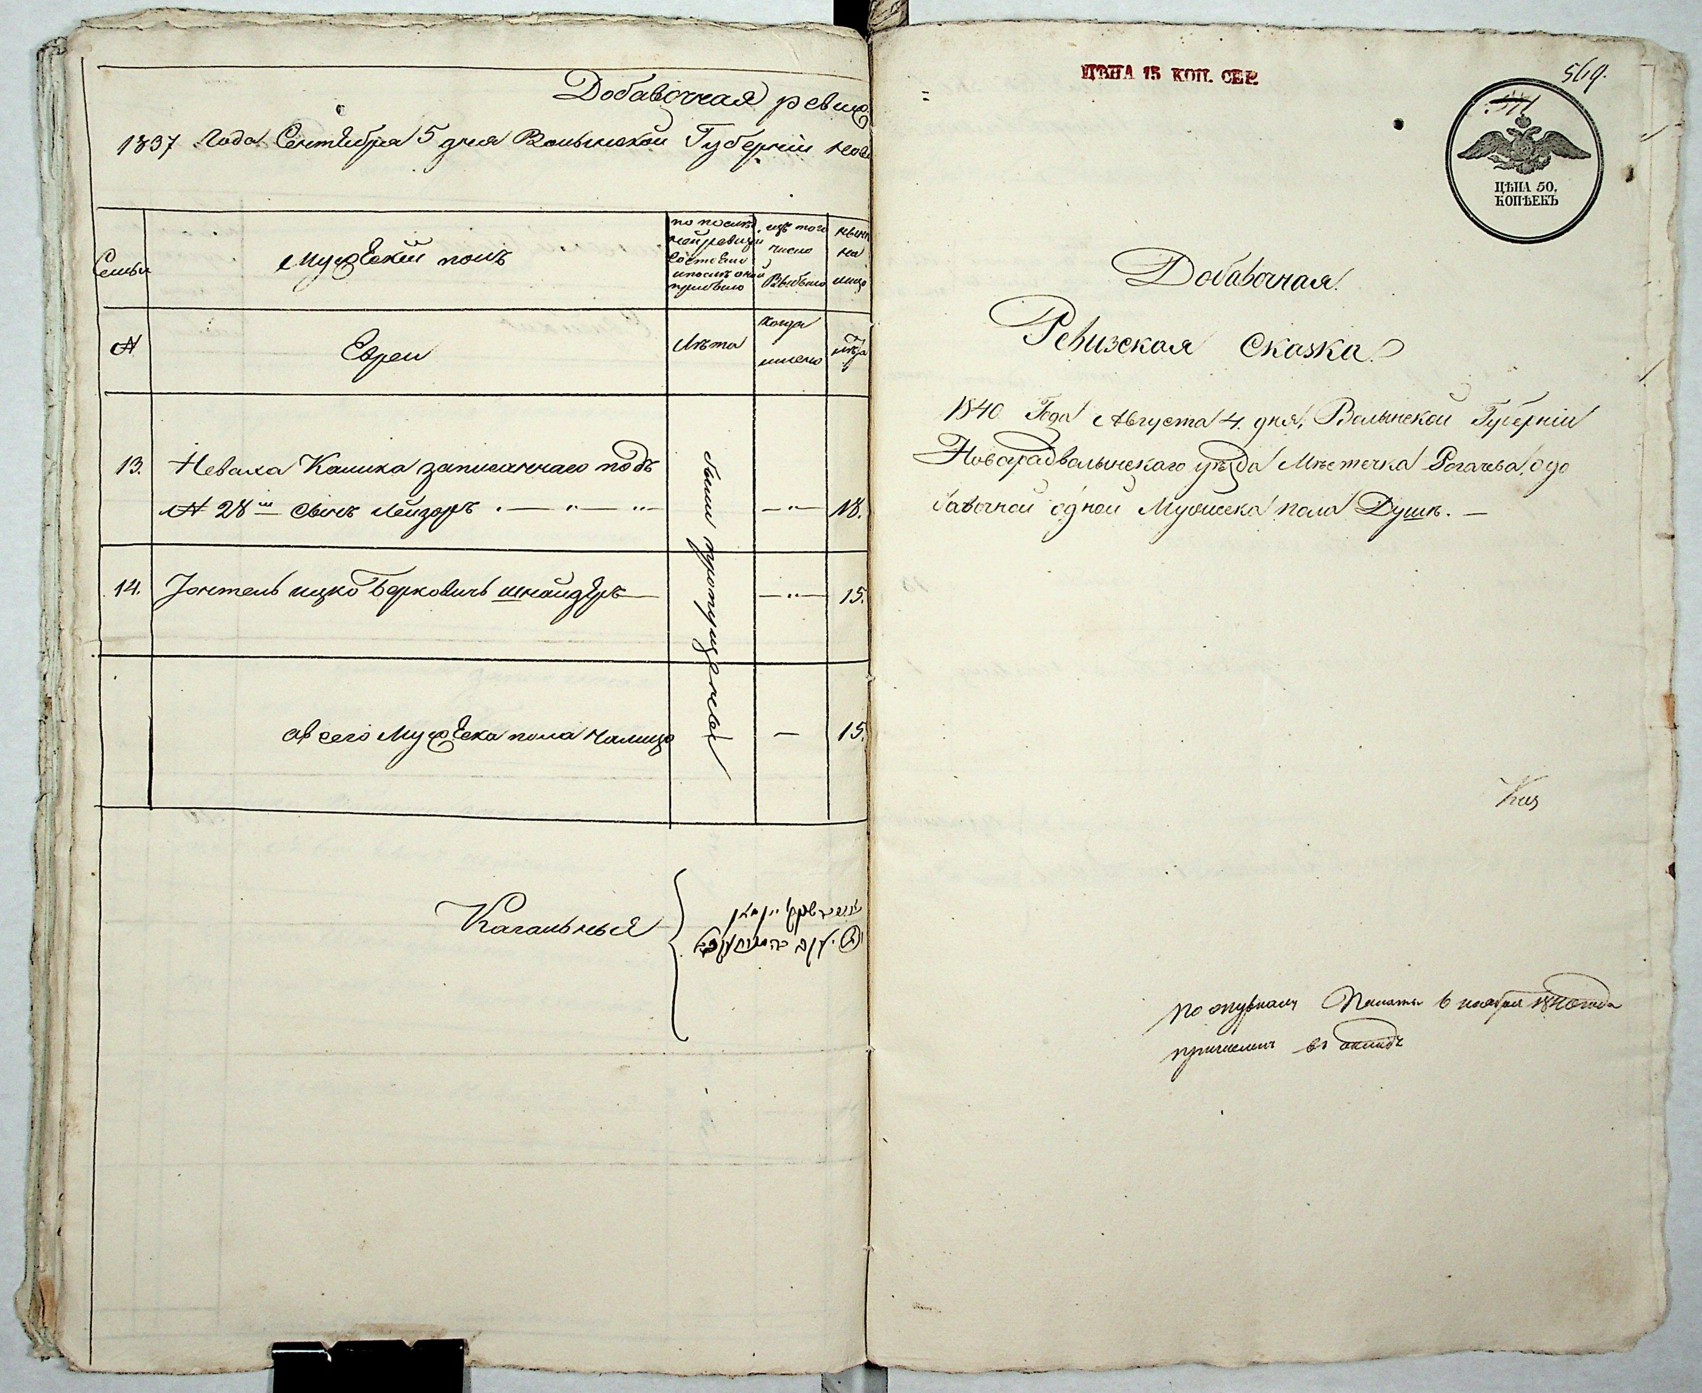 Добавочная ревиз
1837 Года Сентября 5 дня Волынской Губернiи Ново
Семьи
Мужескiй полъ
по послед
ней ревизiи
состояло
и после оной
прибыло
изъ того
число
Выбыло
ныне
на
лицо
№
Евреи
Лѣта
когда
имено
лѣта
13. Неваха Калика записаннаго подъ
№ 28 сынъ Лейзоръ 18.
были пропущены
14. Іонтель ицко Берковичь шнайдеръ 15.
А всего Мужеска пола налицо 15.
Кагальныя
ЦѢНА 15 КОП. СЕР.
569.
ЦѢНА 50.
КОПѢЕКЪ
Добавочная
Ревизская Сказка
1840 Года Августа 4. дня, Волынской Губернiи
Новоградволынскаго уѣзда Мѣстечка Рогачева, о до
бавочной одной Мужеска пола Душѣ. —
Каз
Палаты 6 ноября 1840 года
причисленъ въ окладъ